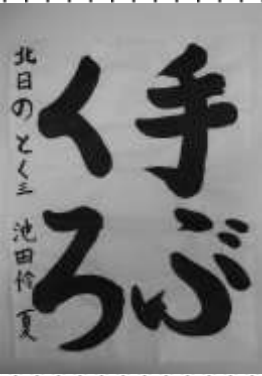 手ぶ
くろ
北日の とく三 池田怜夏